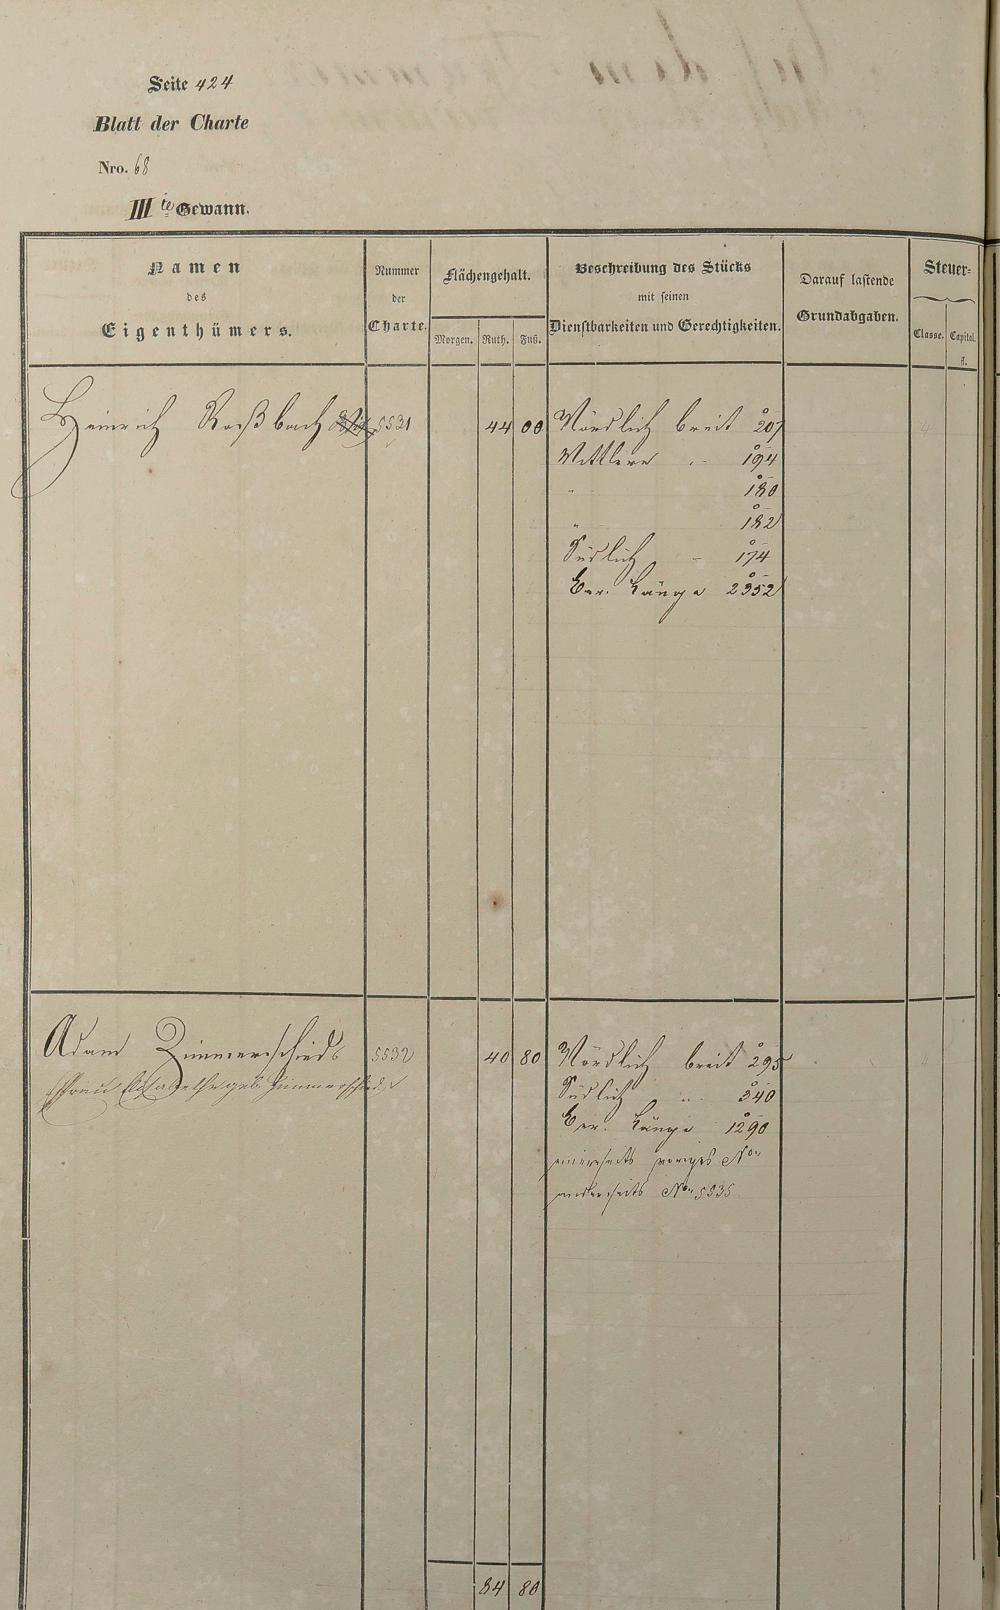 Seite 424
Blatt der Charte
Nro. 68
III te Gewann.
Namen
des
Eigenthümers.
Nummer
der
Charte.
Flächengehalt.
Morgen. Ruth. Fuß.
Beschreibung des Stücks
mit seinen
Dienstbarkeiten und Gerechtigkeiten.
Darauf lastende
Grundabgaben.
Steuer-
Classe. Capital.
fl.
Heinrich Roßbach 5531 44 00 Nördlich breit 207
Mittlere " 194
" 180
" 182
Südlich - 174
Ger. Länge 2352
Adam Zimmerschied 5532 40 80 Nördlich breit 295
Frau Elisabethe geb. Zimmerschied
Südlich " 340
Ger. Länge 1290
einerseits voriges No
anderseits No 5535
84 80